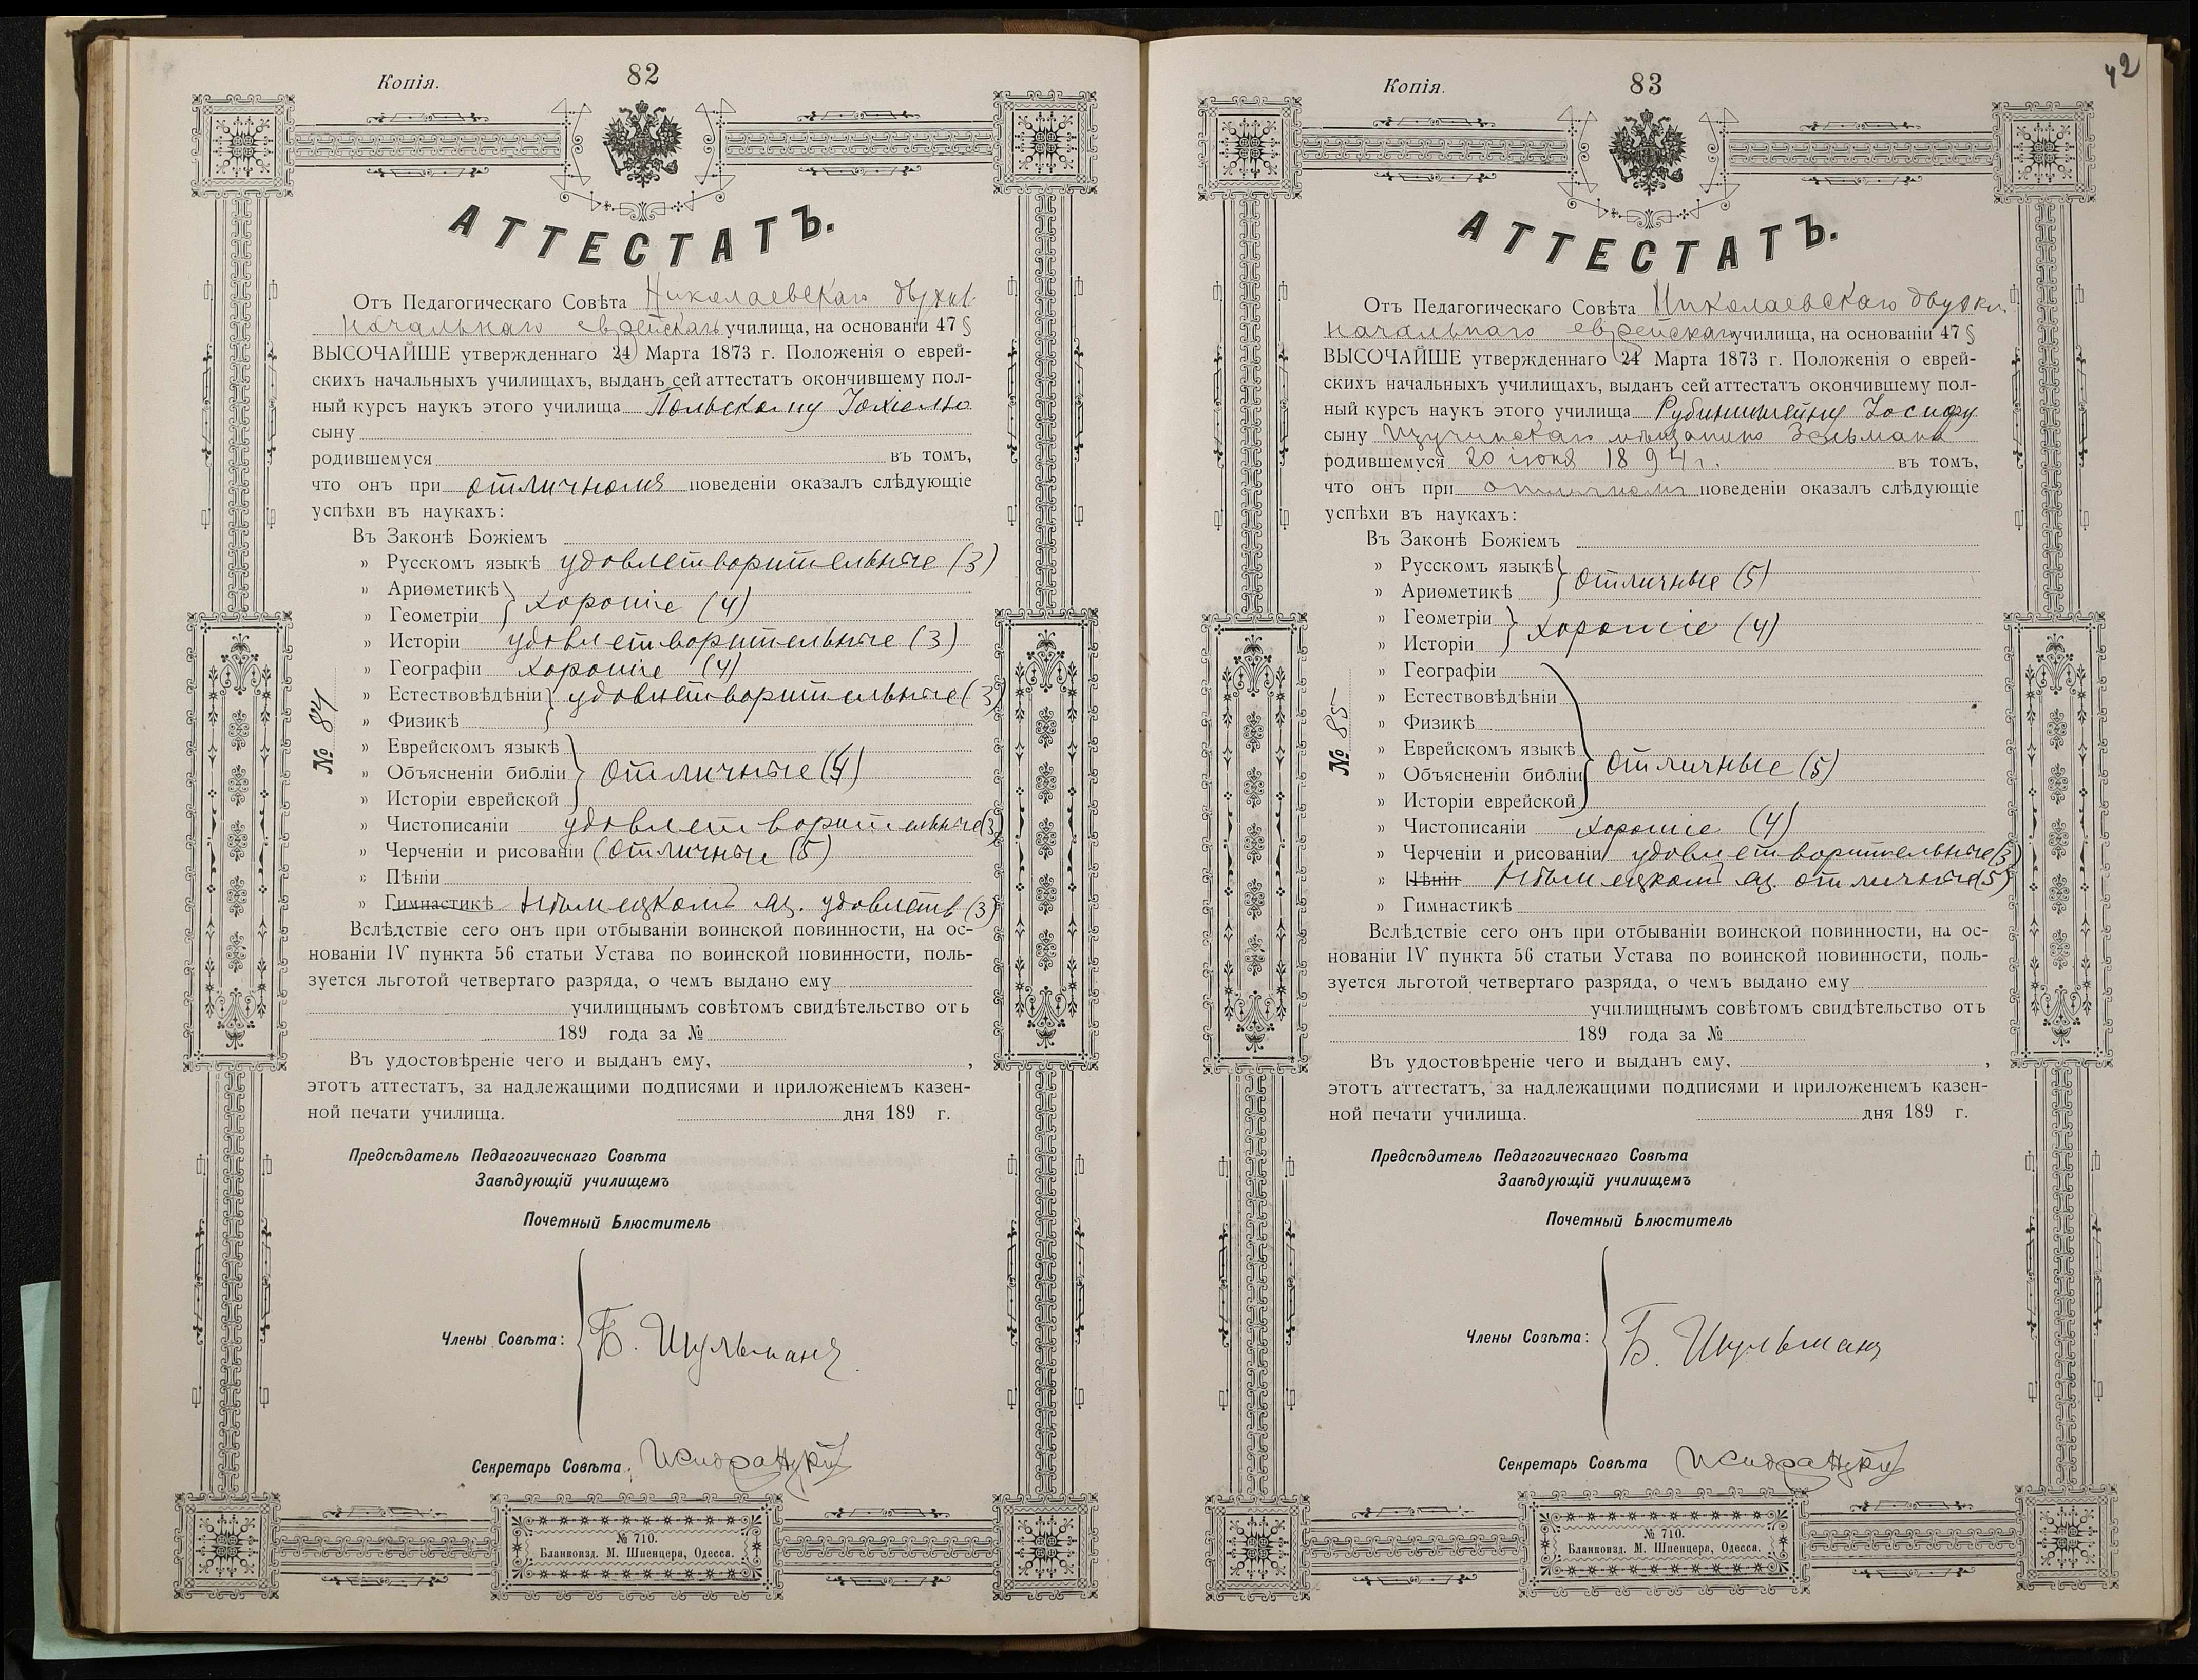 Копія.
82
АТТЕСТАТЪ.
Отъ Педагогическаго Совѣта Николаевскаго двухкл
начальнаго еврейскаго училища, на основаніи 47 §
ВЫСОЧАЙШЕ утвержденнаго 24 Марта 1873 г. Положенія о еврей-
скихъ начальныхъ училищахъ, выданъ сей аттестатъ окончившему пол-
ный курсъ наукъ этого училища Польскому Іохелю
сыну
родившемуся въ томъ,
что онъ при отличномъ поведеніи оказалъ слѣдующіе
успѣхи въ наукахъ:
Въ Законѣ Божіемъ
» Русскомъ языкѣ удовлетворительные (3)
» Ариѳметикѣ
» Геометріи } хорошіе (4)
» Исторіи удовлетворительные (3)
» Географіи хорошіе (4)
» Естествовѣдѣніи } удовлетворительные (3)
» Физикѣ
» Еврейскомъ языкѣ
» Объясненіи библіи } отличные
» Исторіи еврейской
» Чистописаніи удовлетворительные (3)
» Черченіи и рисованіи отличные (5)
» Пѣніи
» Гимнастикѣ Нѣмецкомъ яз. удовлетв (3)
№ 84
Вслѣдствіе сего онъ при отбываніи воинской повинности, на ос-
нованіи IV пункта 56 статьи Устава по воинской повинности, поль-
зуется льготой четвертаго разряда, о чемъ выдано ему
училищнымъ совѣтомъ свидѣтельство отъ
189 года за №
Въ удостовѣреніе чего и выданъ ему, ,
этотъ аттестатъ, за надлежащими подписями и приложеніемъ казен-
ной печати училища. дня 189 г.
Предсѣдатель Педагогическаго Совѣта
Завѣдующій училищемъ
Почетный Блюститель
Члены Совѣта: { Б. Шульманъ
Секретарь Совѣта:
№ 710.
Бланкоизд. М. Шпенцера, Одесса.
42
Копія.
83
АТТЕСТАТЪ.
Отъ Педагогическаго Совѣта Николаевскаго двухкл
начальнаго еврейскаго училища, на основаніи 47 §
ВЫСОЧАЙШЕ утвержденнаго 24 Марта 1873 г. Положенія о еврей-
скихъ начальныхъ училищахъ, выданъ сей аттестатъ окончившему пол-
ный курсъ наукъ этого училища Рубинштейну Іосифу
сыну мѣщанина Зельмана
родившемуся 20 іюня 1894 г. въ томъ,
что онъ при отличномъ поведеніи оказалъ слѣдующіе
успѣхи въ наукахъ:
Въ Законѣ Божіемъ
» Русскомъ языкѣ } отличные (5)
» Ариѳметикѣ
» Геометріи } хорошіе (4)
» Исторіи
» Географіи
» Естествовѣдѣніи
» Физикѣ
» Еврейскомъ языкѣ } отличные (5)
» Объясненіи библіи
» Исторіи еврейской
» Чистописаніи хорошіе (4)
» Черченіи и рисованіи удовлетворительные (3)
» Пѣніи Нѣмецкомъ яз. отличные (5)
» Гимнастикѣ
№ 85
Вслѣдствіе сего онъ при отбываніи воинской повинности, на ос-
нованіи IV пункта 56 статьи Устава по воинской повинности, поль-
зуется льготой четвертаго разряда, о чемъ выдано ему
училищнымъ совѣтомъ свидѣтельство отъ
189 года за №
Въ удостовѣреніе чего и выданъ ему, ,
этотъ аттестатъ, за надлежащими подписями и приложеніемъ казен-
ной печати училища. дня 189 г.
Предсѣдатель Педагогическаго Совѣта
Завѣдующій училищемъ
Почетный Блюститель
Члены Совѣта: { Б. Шульманъ
Секретарь Совѣта
№ 710.
Бланкоизд. М. Шпенцера, Одесса.